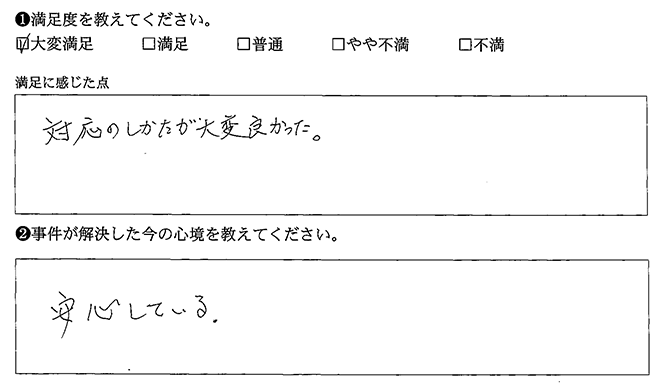 ❶満足度を教えてください。
☑大変満足 □満足 □普通 □やや不満 □不満
満足に感じた点
対応のしかたが大変良かった。
❷事件が解決した今の心境を教えてください。
安心している.